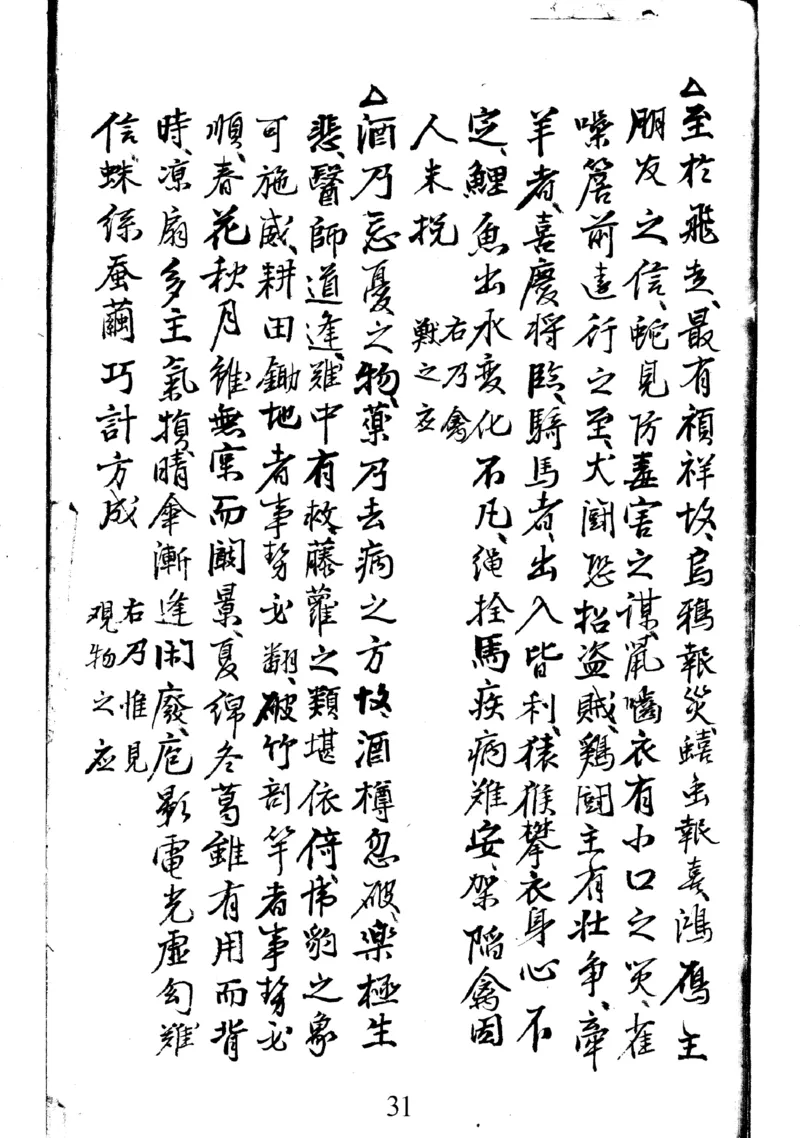 △至於飛走、最有禎祥坆、烏鴉報災、蟢虫報喜、鴻鴈主
朋友之信、蛇見防毒害之謀、鼠嚙衣有小口之災、雀
噪簷前遠行之至、犬鬪恐招盗賊、鷄鬪主有壮争、牽
羊者、喜慶将臨、騎馬者、出入皆利、猿猴攀衣身心不
定、鯉魚出水変化不凡、繩拴馬疾病难安、架陷禽囚
人未挩
右乃禽
獸之应
△酒乃忘憂之物、藥乃去病之方坆、酒樽忽破、楽極生
悲、醫師道逢、難中有救、藤蘿之類堪依倚、虎豹之象
可施威、耕田鋤地者事势必翻、破竹剖竿者事势必
順、春花秋月雖無宲而関景、夏綿冬葛雖有用而背
時、凉扇多主氣損、晴傘漸逢閑廢、庖影電光虚幻难
信、蛛絲蚕繭巧計方成
右乃惟見
观物之应
31